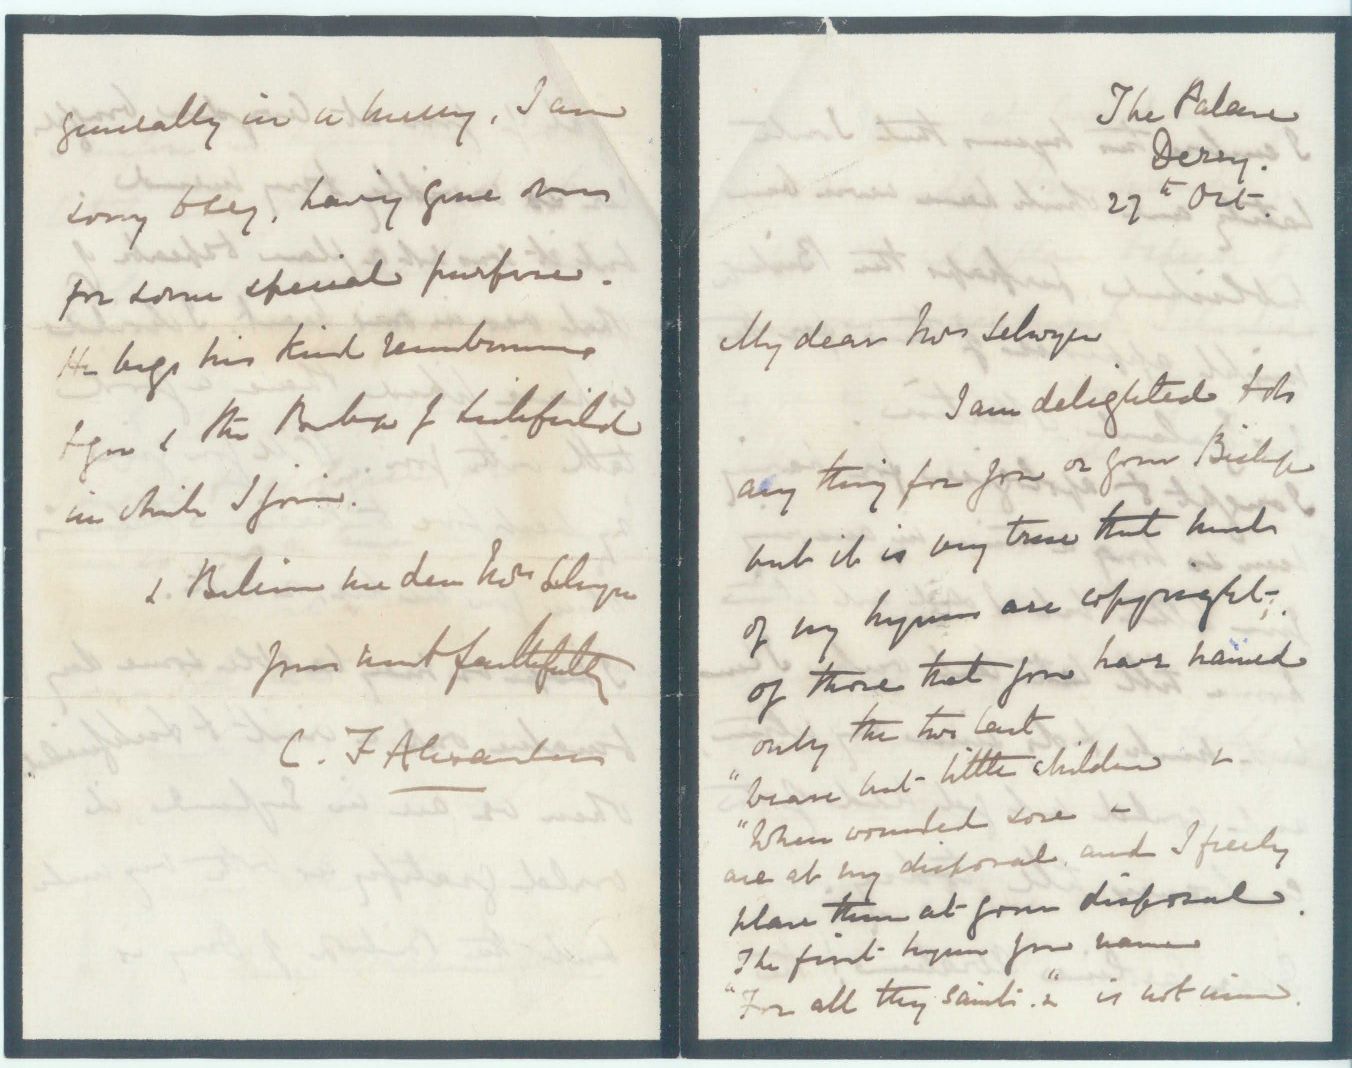 The Palace
Derry.
27th Oct.
My dear Mrs Selwyn
I am delighted to do
any thing for you or your Bishop
but it is very true that much
of my hymns are copyright;
of those that you have named
only the two last
"beare but little children &
"When wounded sore"
are at my disposal and I freely
place them at your disposal.
The first hymn you name
"For all thy saints." is not mine.
generally in a hurry, I am
sorry to say, having gone over
for some special purpose.
He begs his kind remembrance
to you & the Bishop of Lichfield
in which I join.
& Believe me dear Mrs Selwyn
yours most faithfully
C. F Alexander